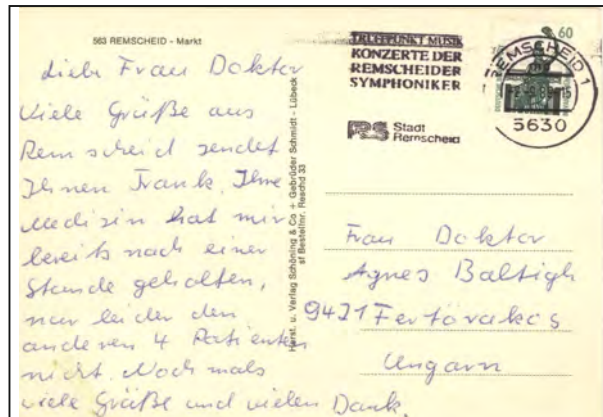 563 REMSCHEID - Markt
Liebe Frau Doktor
Viele Grüße aus
Remscheid sendet
Ihnen Frank. Ihre
Medizin hat mir
bereits nach einer
Stunde geholfen,
nur leider den
anderen 4 Patienten
nicht. Nochmals
viele Grüße und vielen Dank.
Herst. u. Verlag Schöning & Co + Gebrüder Schmidt - Lübeck
sf Bestellnr. Reschd 33
TREFFPUNKT MUSIK
KONZERTE DER
REMSCHEIDER
SYMPHONIKER
RS Stadt
Remscheid
60
REMSCHEID 1
5630
Frau Doktor
Agnes Baltigh
9421 Fertörakos
Ungarn